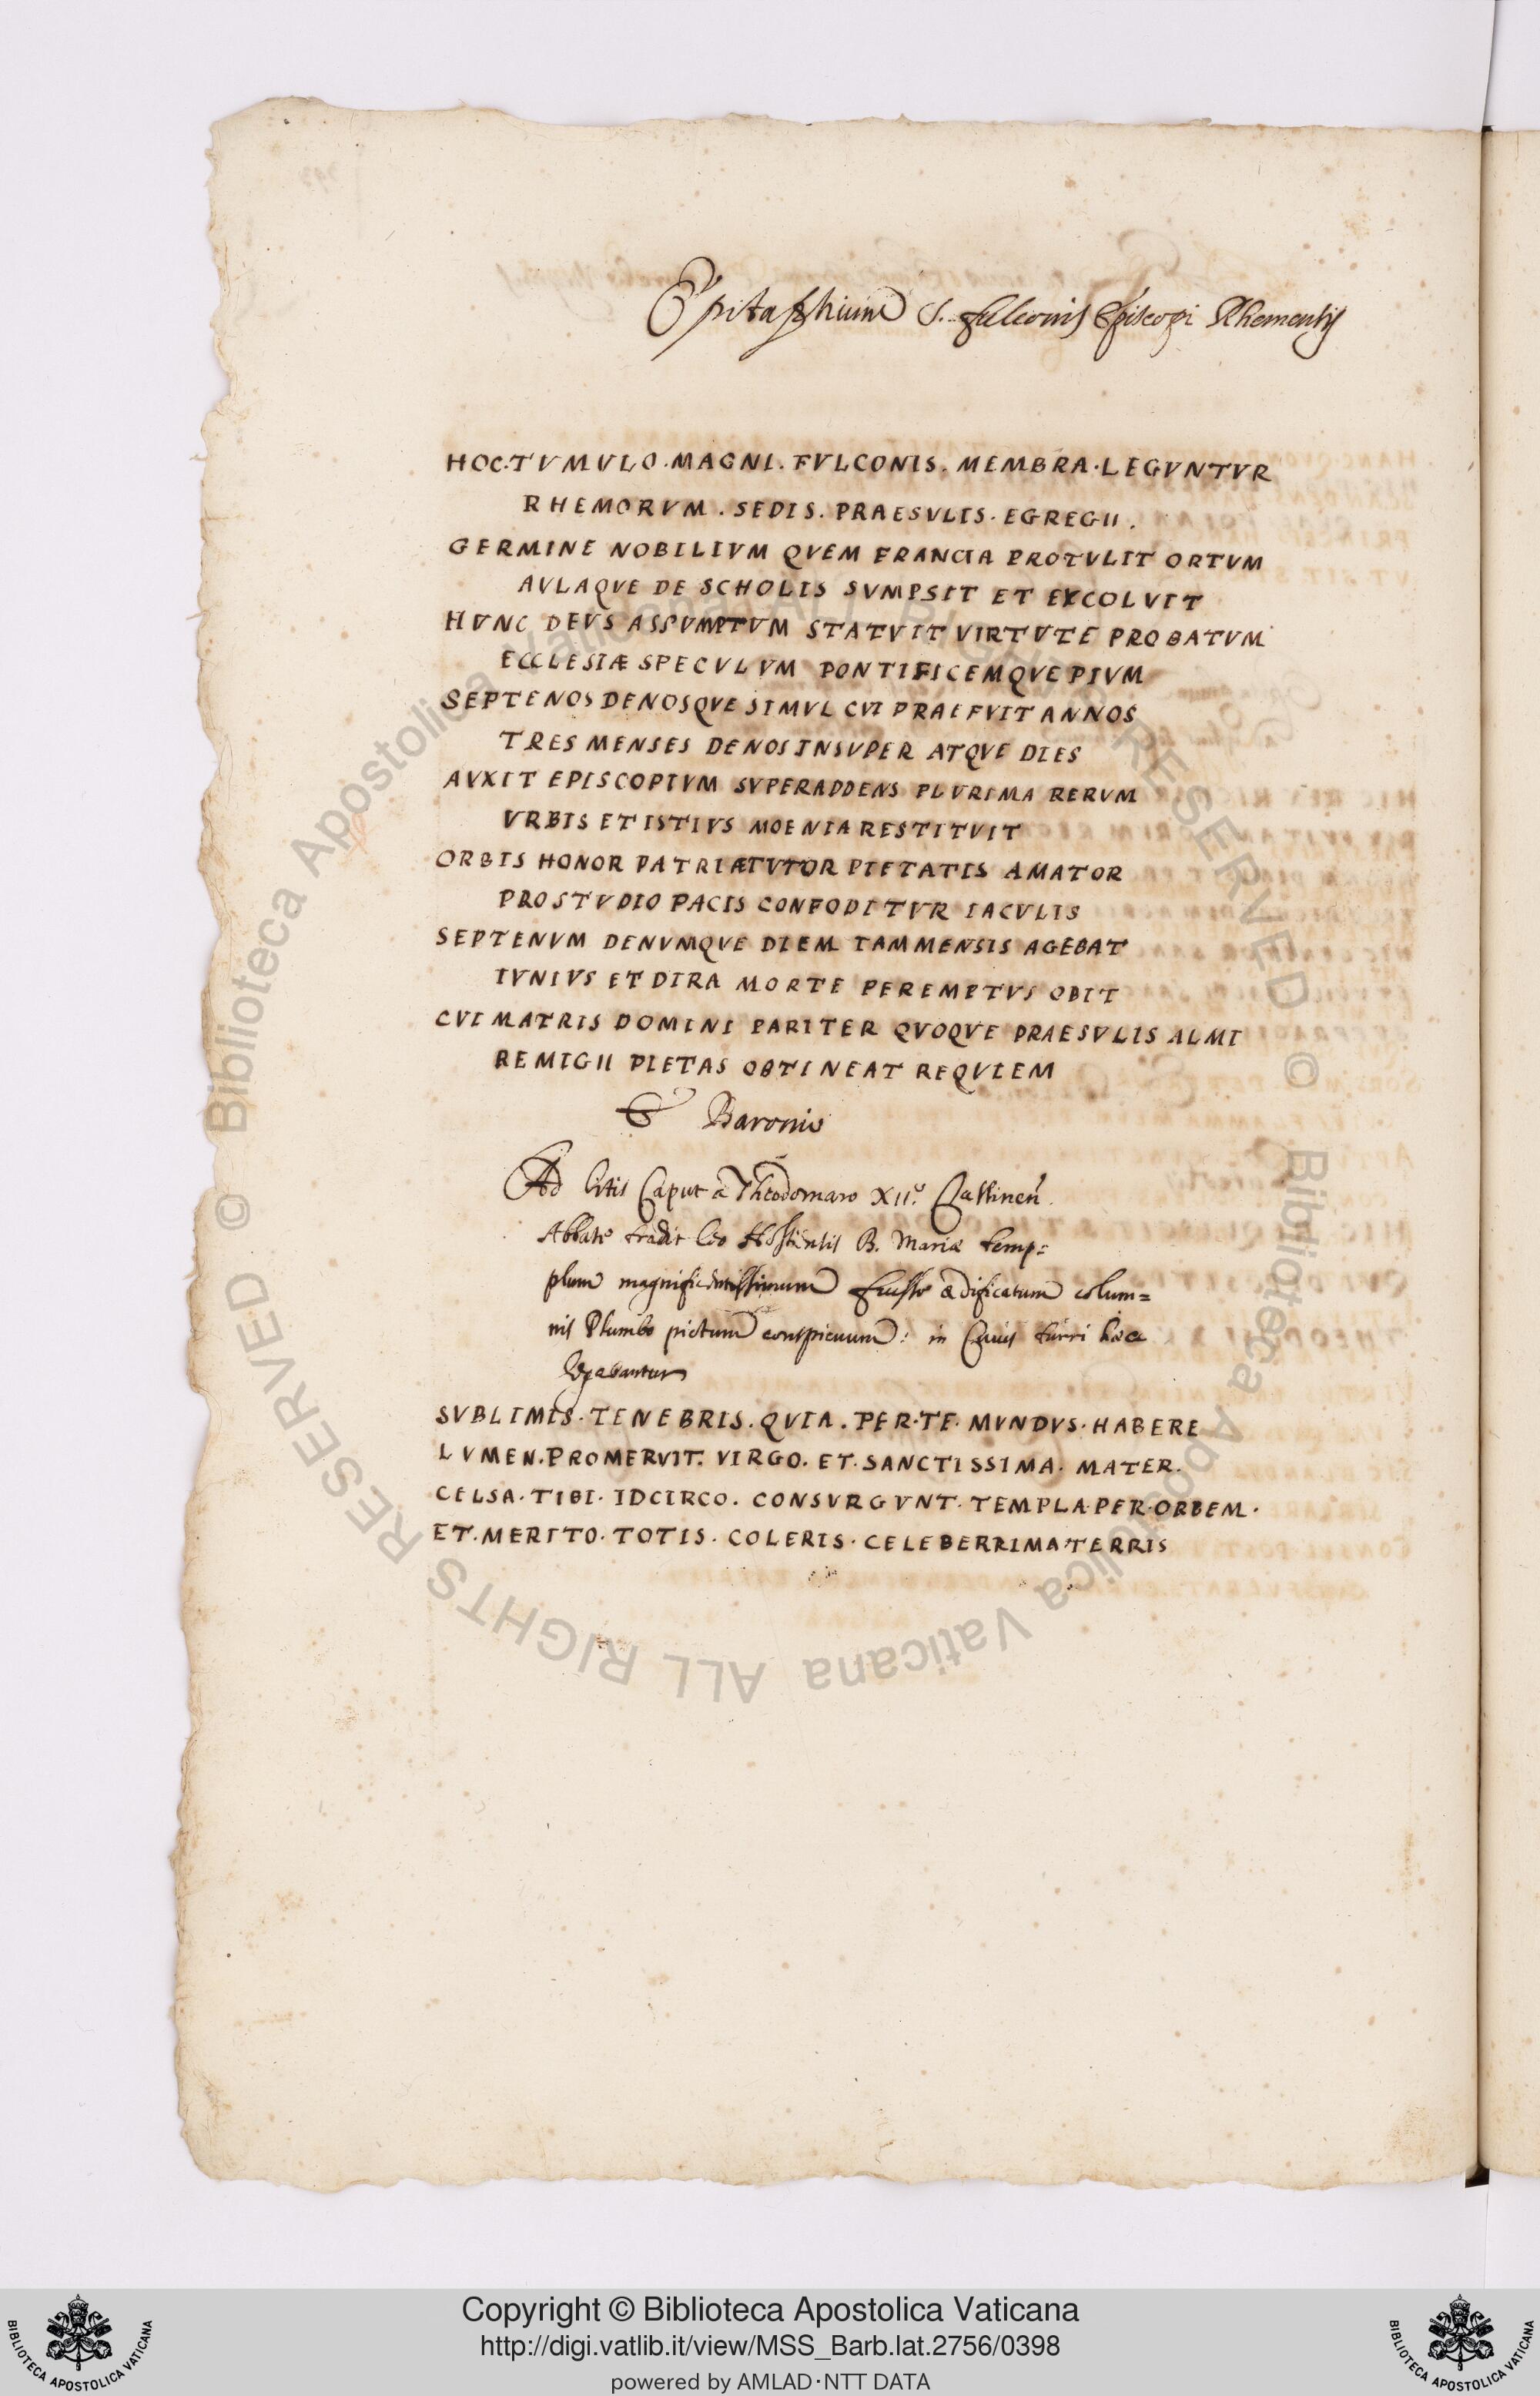 Epitaphium S. Fulconis Episcopi Rhemensis
HOC·TVMVLO·MAGNI·FVLCONIS·MEMBRA·LEGVNTVR
RHEMORVM·SEDIS·PRAESVLIS·EGREGII·
GERMINE NOBILIVM QVEM FRANCIA PROTVLIT ORTVM
AVLAQVE DE SCHOLIS SVMPSIT ET EXCOLVIT
HVNC DEVS ASSVMPTVM STATVIT VIRTVTE PROBATVM
ECCLESIÆ SPECVLVM PONTIFICEMQVE PIVM
SEPTENOS DENOSQVE SIMVL CVI PRAEFVIT ANNOS
TRES MENSES DENOS INSVPER ATQVE DIES
AVXIT EPISCOPIVM SVPERADDENS PLVRIMA RERVM
VRBIS ET ISTIVS MOENIA RESTITVIT
ORBIS HONOR PATRIÆ TVTOR PIETATIS AMATOR
PRO STVDIO PACIS CONFODITVR IACVLIS
SEPTENVM DENVMQVE DIEM TAM MENSIS AGEBAT
IVNIVS ET DIRA MORTE PEREMPTVS OBIT
CVI MATRIS DOMINI PARITER QVOQVE PRAESVLIS ALMI
REMIGII PIETAS OBTINEAT REQVIEM
Baronio
Ad litis Caput a Theodomaro XII.º Cassinen.
Abbate tradit Leo Hostiensis B. Mariæ temp=
plum magnificentissimum fuisse ædificatum colum=
nis Plumbo pictum conspicuum: in Cuius turri hæc
legebantur
SVBLIMIS·TENEBRIS·QVIA·PER·TE·MVNDVS·HABERE
LVMEN·PROMERVIT·VIRGO·ET·SANCTISSIMA·MATER·
CELSA·TIBI·IDCIRCO·CONSVRGVNT·TEMPLA·PER·ORBEM·
ET·MERITO·TOTIS·COLERIS·CELEBERRIMA TERRIS
© Biblioteca Apostolica Vaticana ALL RIGHTS RESERVED © Biblioteca Apostolica Vaticana ALL RIGHTS RESERVED
Copyright © Biblioteca Apostolica Vaticana
http://digi.vatlib.it/view/MSS_Barb.lat.2756/0398
powered by AMLAD·NTT DATA
BIBLIOTECA APOSTOLICA VATICANA
BIBLIOTECA APOSTOLICA VATICANA